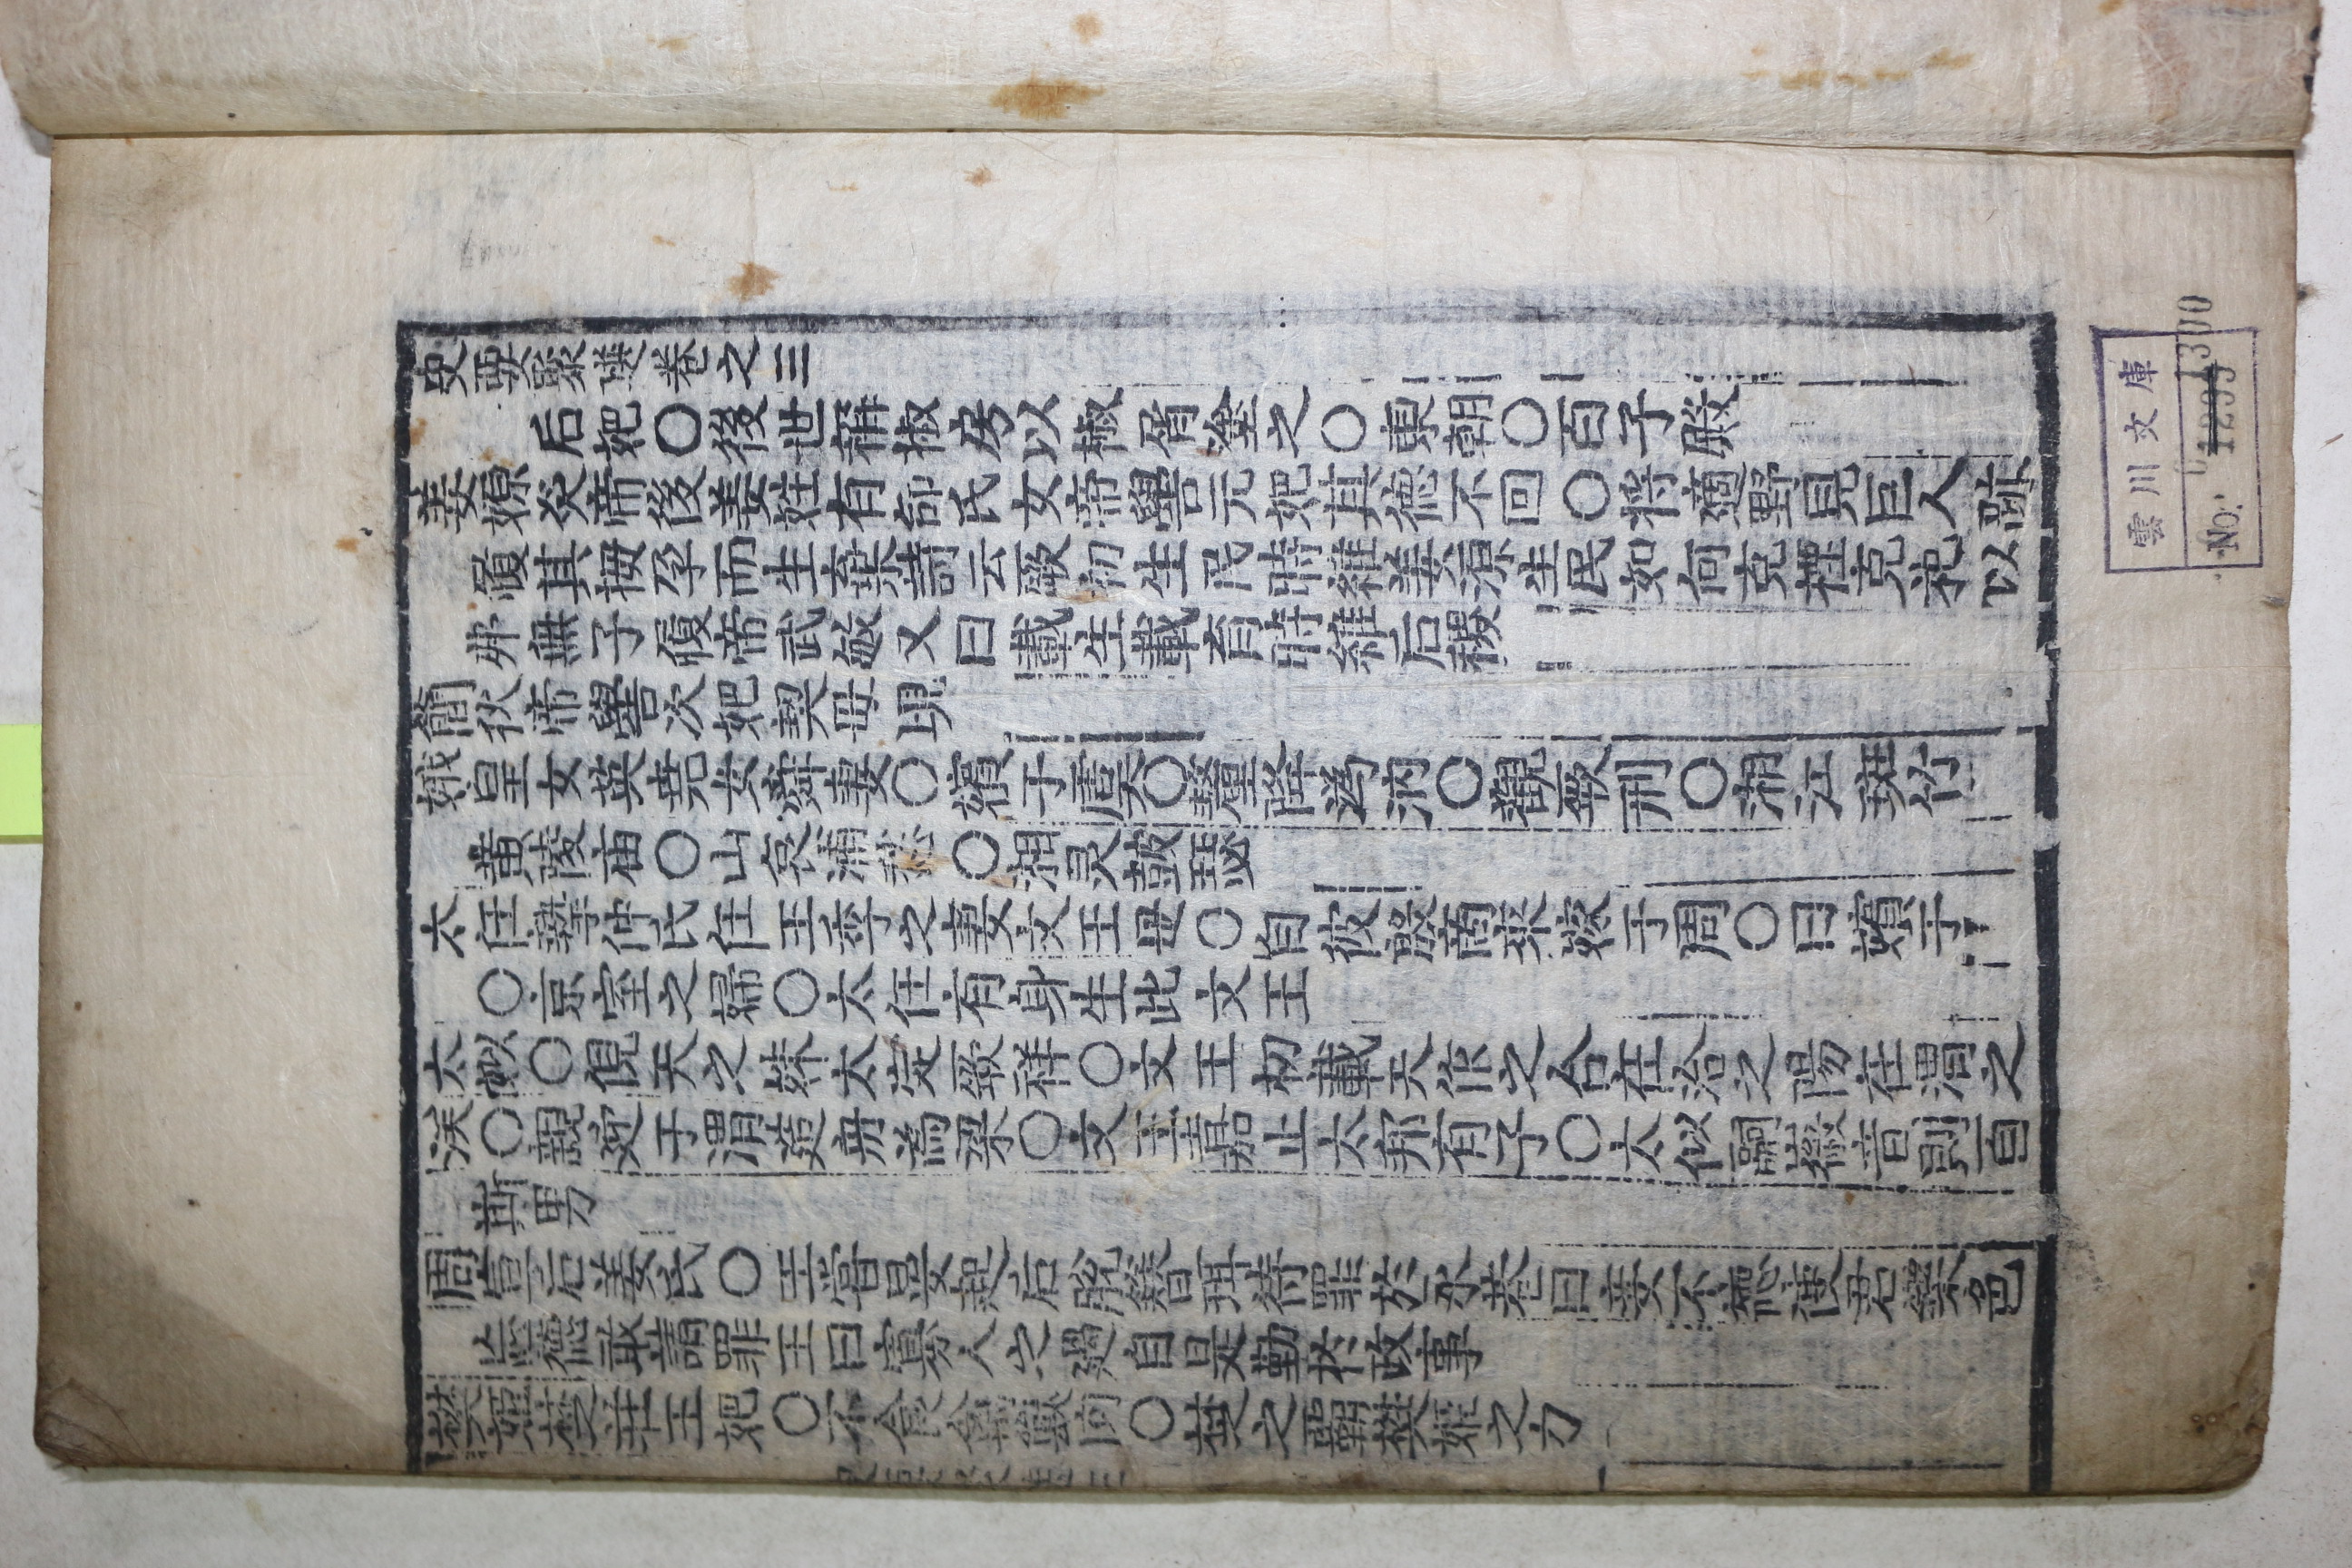 史要聚選卷之三
后妃〇後世稱椒房以椒屑塗之〇東朝〇百子殿
姜嫄炎帝後姜姓有邰氏女帝嚳元妃其德不回〇將適野見巨人跡
履其拇孕而生棄詩云厥初生民時維姜嫄生民如何克禋克祀以
弗無子履帝武敏又曰載生載育時維后稷
簡狄帝嚳次妃契母 現
娥皇女英堯女舜妻〇嬪于虞〇釐降溈汭〇觀厥刑〇湘江斑竹
黃陵庙〇山哀浦愁〇湘灵鼓瑟
太任摯仲氏任王季之妻文王母〇自彼殷商來嫁于周〇曰嬪于
〇京室之婦〇太任有身生此文王
太姒〇俔天之妹太定厥祥〇文王初載天作之合在洽之陽在渭之
涘〇親迎于渭造舟為梁〇文王嘉止太邦有子〇太似嗣徽音則百
斯男
周宣后姜氏〇王嘗晏起后脫簪珥待罪於永巷曰妾不德使君樂色
忘德敢請罪王曰寡人之過自是勤於政事
樊姬楚莊王妃〇不食禽獸肉〇楚之霸樊姬之力
雲川文庫
No. 1299 1300